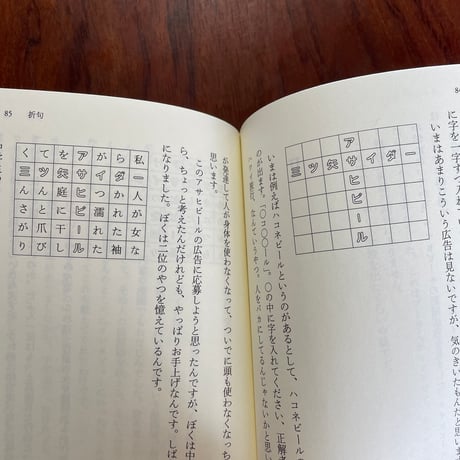 に字を一字ずつ入れ
いまはあまりこういう広告は見ないですが、気のきいたもんだと思いま
アサヒビール
三ツ矢サイダー
いまは例えばハコネビールというのがあるとして、ハコネビールの
のが出ます。「〇コ〇〇ール」。〇の中に字を入れてください、正解者
ハワイ旅行、なんていうやつ。人をバカにしてるんじゃないかと思い
85 折句
が発達して人が身体を使わなくなって、ついでに頭も使わなくなっち
思います。
このアサヒビールの広告に応募しようと思ったんですが、ぼくは中
ら、ちょっと考えたんだけれども、やっぱりお手上げなんです。しば
になりました。ぼくは二位のやつを憶えているんです。
私一人が女な
らダかれた袖
がイつ濡れた
アサヒビール
を矢庭に干し
てツんと爪び
く三んさがり